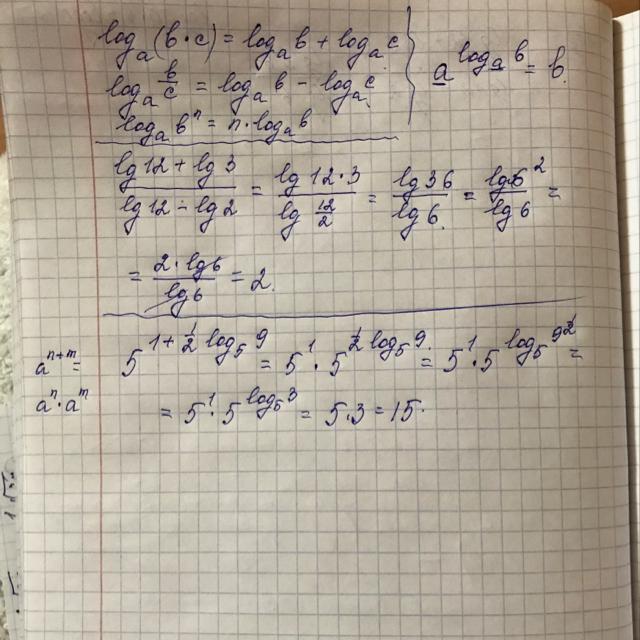 logₐ(b·c) = logₐb + logₐc
logₐ b/c = logₐb − logₐc
logₐbⁿ = n·logₐb
a^(logₐb) = b.
(lg12 + lg3)/(lg12 − lg2) = (lg 12·3)/(lg 12/2) = lg36/lg6 = lg6²/lg6 =
= (2·lg6)/lg6 = 2.
aⁿ⁺ᵐ =
aⁿ·aᵐ
5^(1+½log₅9) = 5¹·5^(½log₅9) = 5¹·5^(log₅9^½) =
= 5¹·5^(log₅3) = 5·3 = 15.